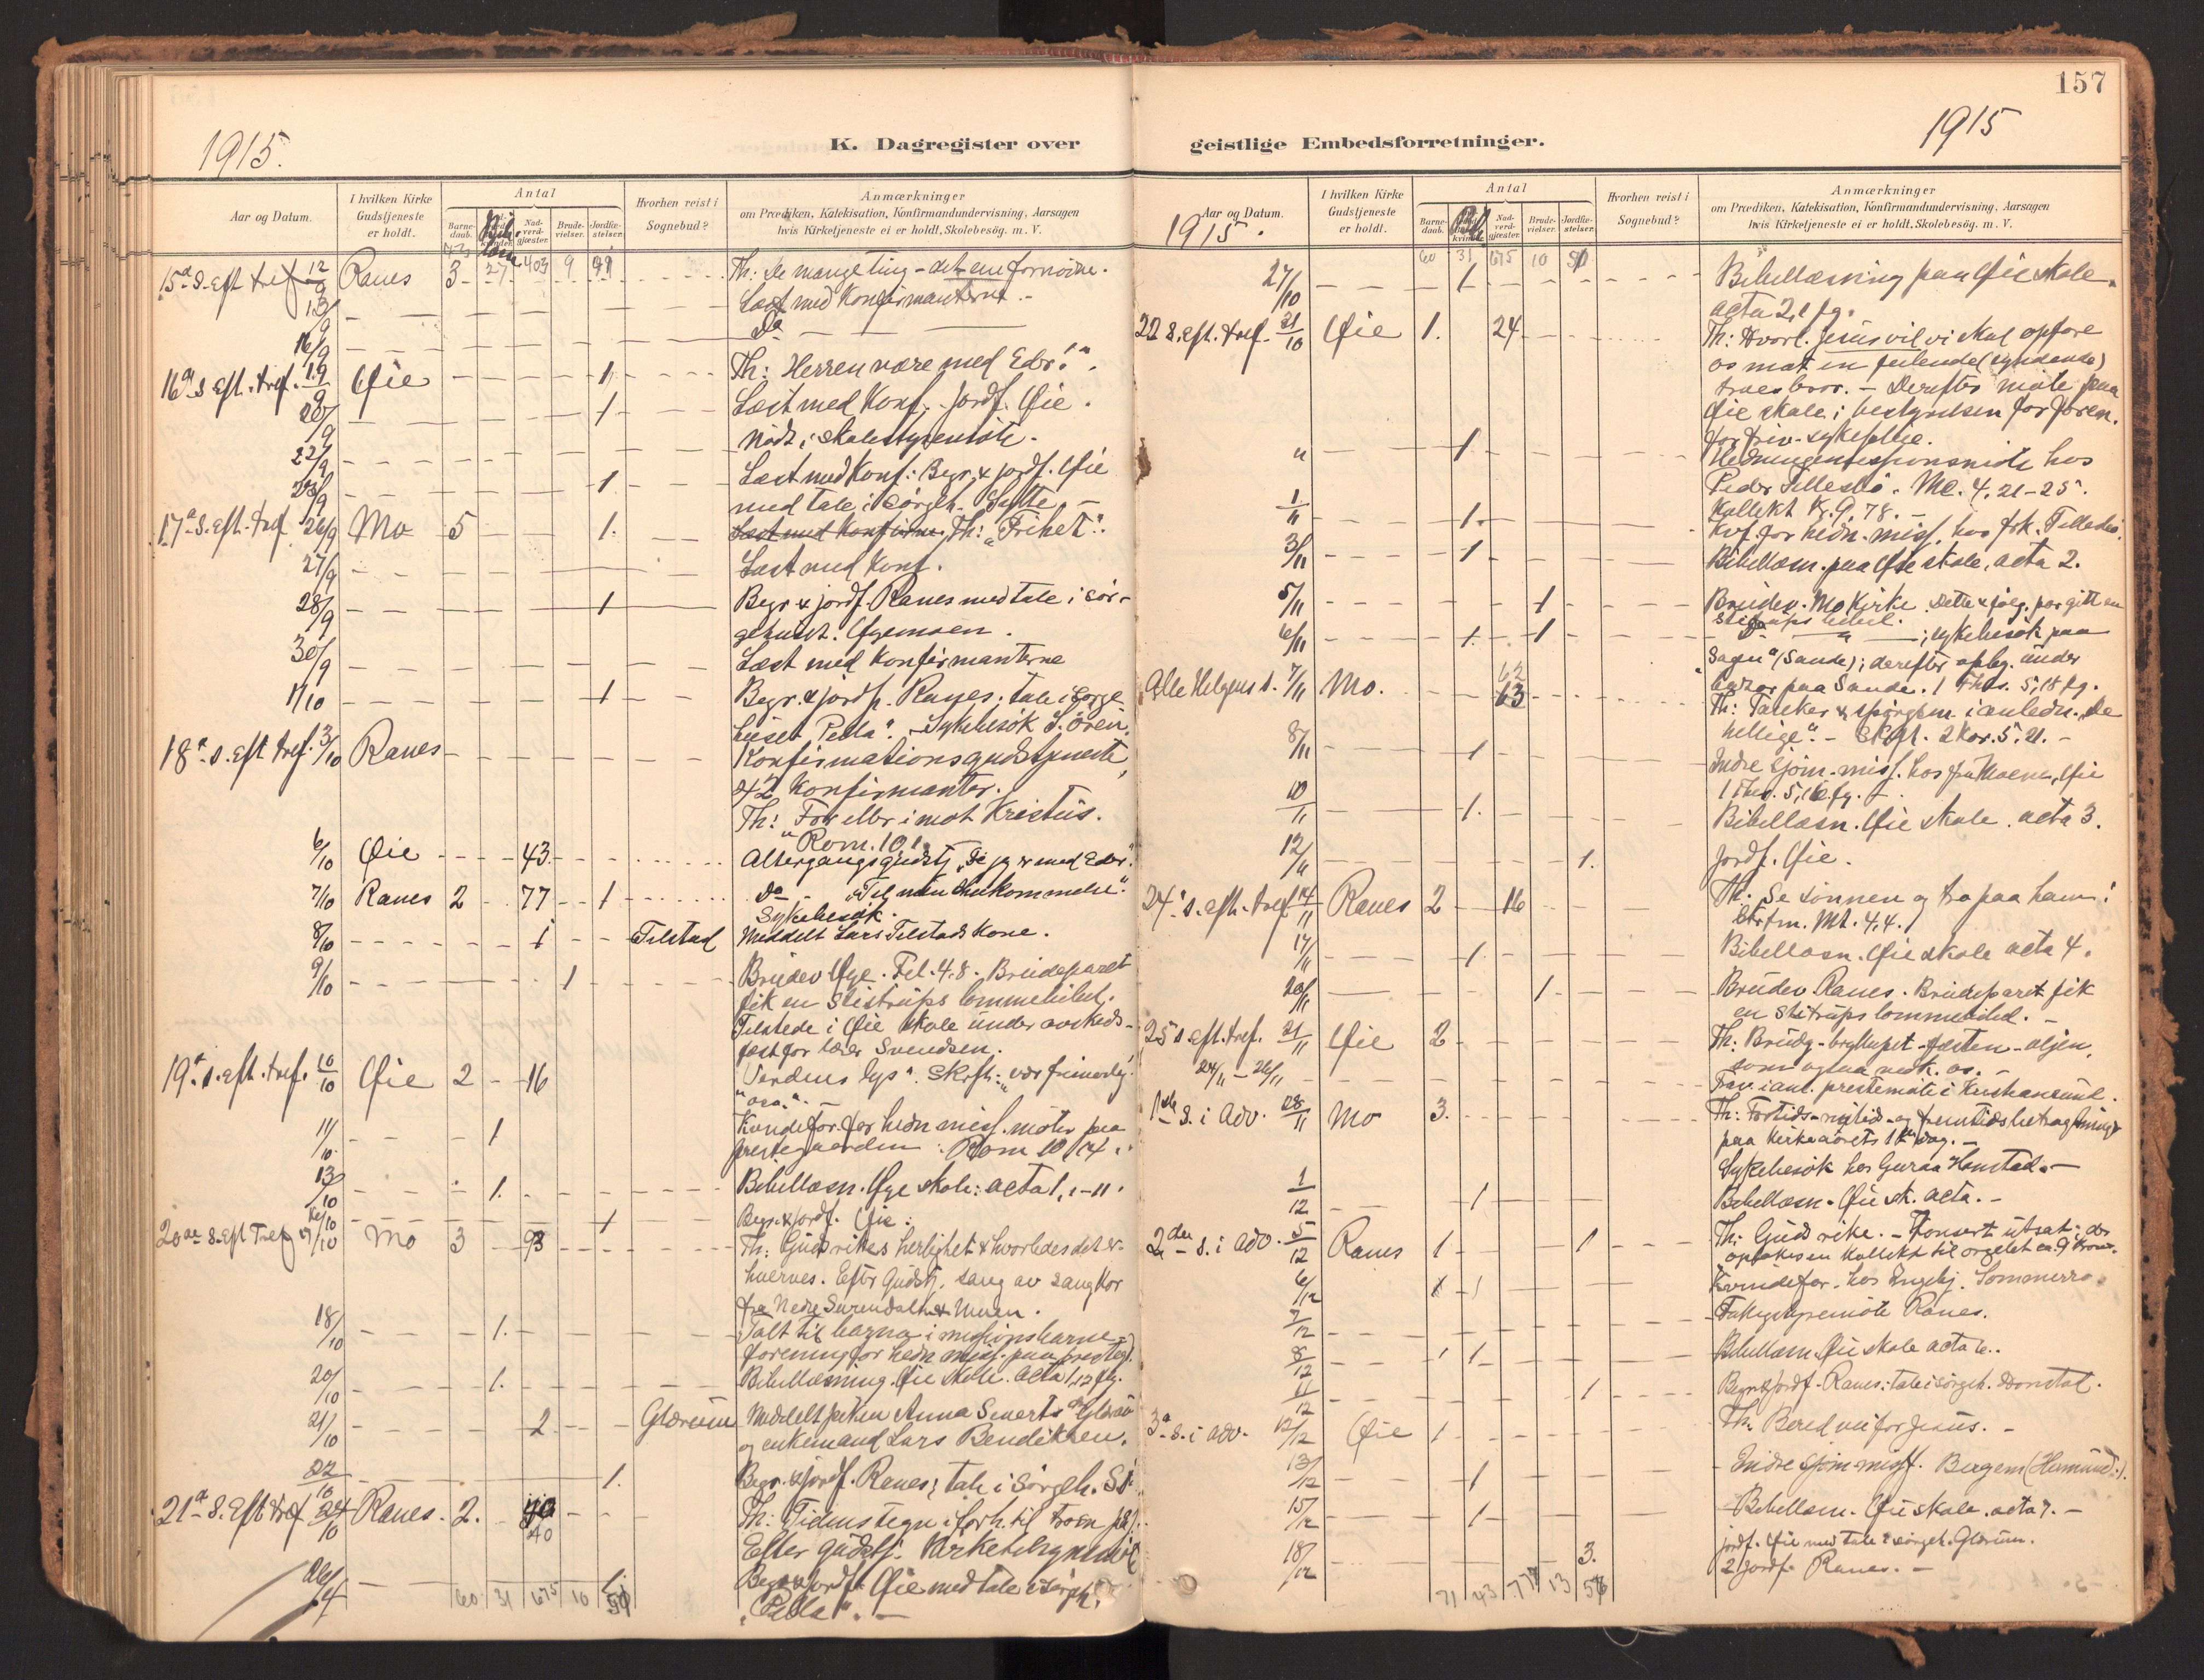 1915.
K. Dagregister over
Aar og Datum.
I hvilken Kirke Gudstjeneste er holdt.
Antal
Barne-daab.
Nad-verd-gjæster.
Brude-vielser.
Jordfæ-stelser.
Hvorhen reist i Sognebud?
Anmærkninger
om Prædiken, Katekisation, Konfirmandundervisning, Aarsagen
hvis Kirketjeneste ei er holdt, Skolebesög. m. V.
27 403 9
15de S. eft tref 12/9 Ranes 3 Th: De mange ting - det ene fornødne.
13/9 Læst med Konfirmanterne.-
16/9 Do
16de S. eft. tref. 19/9 Øie 1 Th: Herren være med Eder!".
20/9 1 Læst med Konf. Jordf. Øie.
22/9 Mødt i skolestyremöte.
23/9 1 Læst med Konf: Begr. & jordf. Øie
med tale i Sörgeh.
17de S. eft. tref 26/9 Mo 5 1. Læst med Konfirm. Th: "Frihet".
27/9 Læst med Konf.
28/9 1 Begr & jordf. Ranes med tale i sör-
gehuset. Øyemoen.
30/9 Læst med Konfirmanterne
1/10 1 Begr. & jordf. Ranes. tale i Sorge
huset "Pella". Sykebesök S. Ören.
18de s. eft tref. 3/10 Ranes Konfirmationsgudstjeneste,
42 Konfirmanter.
Th: For eller imot Kristus.
Rom. 10,1.
6/10 Øie 43 Altergangsgudstj. "Se jeg er med Eder."
7/10 Ranes 2 77 1 Do "Til min ihukommelse".
Sykebesök.
8/10 1 Telstad Meddelt Lars Telstads Kone.
9/10 1 Brudev Øye. Fil. 4.8. Brudeparet
fik en Skistrups lommebibel.
Tilstede i Øie skole under avskeds-
fest for lærer Svendsen.
19de s. eft. tref. 10/10 Øie 2 16 Verdens lys". Skrft:
11/10 1 Kvindefor. for hedn miss. möter paa
prestegaarden: Rom 10 14
13/10 1. Bibellæsn. Øye skole: acta 1, 1-11.
1 Begr. & jordf. Øie:
20de S. eft Tref 17/10 Mo 3 93 Th: Guds rikes herlighet & hvorledes det er-
hverves. Efter Gudstj. sang av sangkor
fra Nedre Surendalen & Moen.
18/10 1. Talt til barna i missionsbarne-
forening for hedn miss. paa presteg.
20/10 1. Bibellæsning. Øie skole. Acta 1,12 flg.
21/10 2 Glærum Meddelt piken Anna Sivertsdtr Glærum
og enkemand Lars Bendiktsen.
22/10 1. Begr. & jordf. Ranes; tale i Sörgeh.
21de S. Eft tref 24/10 Ranes. 2. 40 Th: Tidens tegn i forh. til troen på
Efter gudstj. Kirketilsynsmöte
Begr & jordf. Øie med tale i Sörgeh.
"Pella".-
60 31 675 10

157
1915
geistlige Embedsforretninger.
Aar og Datum.
1915.
I hvilken Kirke Gudstjeneste er holdt.
Antal
Barne-daab.
Nad-verd-gjæster.
Brude-vielser.
Jordfæ-stelser.
Hvorhen reist i Sognebud?
Anmærkninger
om Prædiken, Katekisation, Konfirmandundervisning, Aarsagen
hvis Kirketjeneste ei er holdt, Skolebesög. m. V.
60 31 675 10
27/10 1 Bibellæsning paa Øie skole.
acta 2,1 fg.
22 S. eft. tref. 31/10 Øie 1. 24 Th: Hvorl. Jesus vil vi skal opføre
os mot en feilende (syndende)
troesbror. - Derefter möte paa
Øie skole i bestyrelsen for foren.
for friv. sykepleie.
" 1 Hedningemissionsmöte hos
Peder Tellesbö. Mc. 4, 21-25.
Kollekt Kr. 9,78.-
1/11 1. Kvf. for hedn. miss. hos frk. Tellesbö.
3/11 1 Bibellæsn. paa Øie skole, acta 2.
5/11 1 Brudev. Mo Kirke. Dette & følg. par gitt en
Skistrups bibel.
6/11 1. 1 Do; sykebesök paa
"Sagen" (Sande); derefter opbyg. under
bazar paa Sande. 1 Thes. 5,18 fg.
Alle Helgens d. 7/11 Mo. 62 63 Th: Tanker & spörgsm. i anledn. "De
hellige". - Skrft. 2 Kor. 5,21.-
8/11 1 Indre sjöm. miss. hos fru Moene, Øie
1 Thes. 5,16 fg.-
10/11 1. Bibellæsn. Øie skole. acta 3.
12/11 1. Jordf. Øie.
24de s. eft. tref 14/11 Ranes 2 16 Th: Se sönnen og tro paa ham!
Skrftm. Mt. 4,4.
17/11 1 Bibellæsn. Øie skole acta 4.
20/11 1. Brudev Ranes. Brudeparet fik
en Skistrups lommebibel.-
25de s. eft. tref. 21/11 Øie 2 Th: Brudg. - bryllupet - festen - oljen,
24/11 - 26/11 Frav. i anl. prestemöte i Kristiansund.
1ste S. i Adv. 28/11 Mo 3. Th: Fortids- nutids- og fremtidsbetragtninger
paa kirkeaarets 1ste dag.-
Sykebesök hos Guraa Honstad.-
1/12 1 Bibellæsn. Øie sk. Acta.-
2den S. i Adv. 5/12 Ranes 1 1 Th: Guds rike. - Konsert utsat; der
optokes en kollekt til orgelet ca. 9 Kron.
6/12 1 Kvindefor. hos Ingebj. Sommerro.
7/12 Fattigstyremöte Ranes.
8/12 1 Bibellæsn. Øie skole acta 6..
11/12 1 Begr & jordf. Ranes: tale i sörgeh. Honstad.
3de S. i Adv. 12/12 Øie 1 Th: Bered vei for Jesus.-
13/12 1 Indre sjöm miss. Bergem
15/12 1 Bibellæsn. Øie skole. acta 7.-
18/12 3. jordf. Øie med tale i sörgeh. Glærum.
2 Jordf. Ranes.-
71 43 13